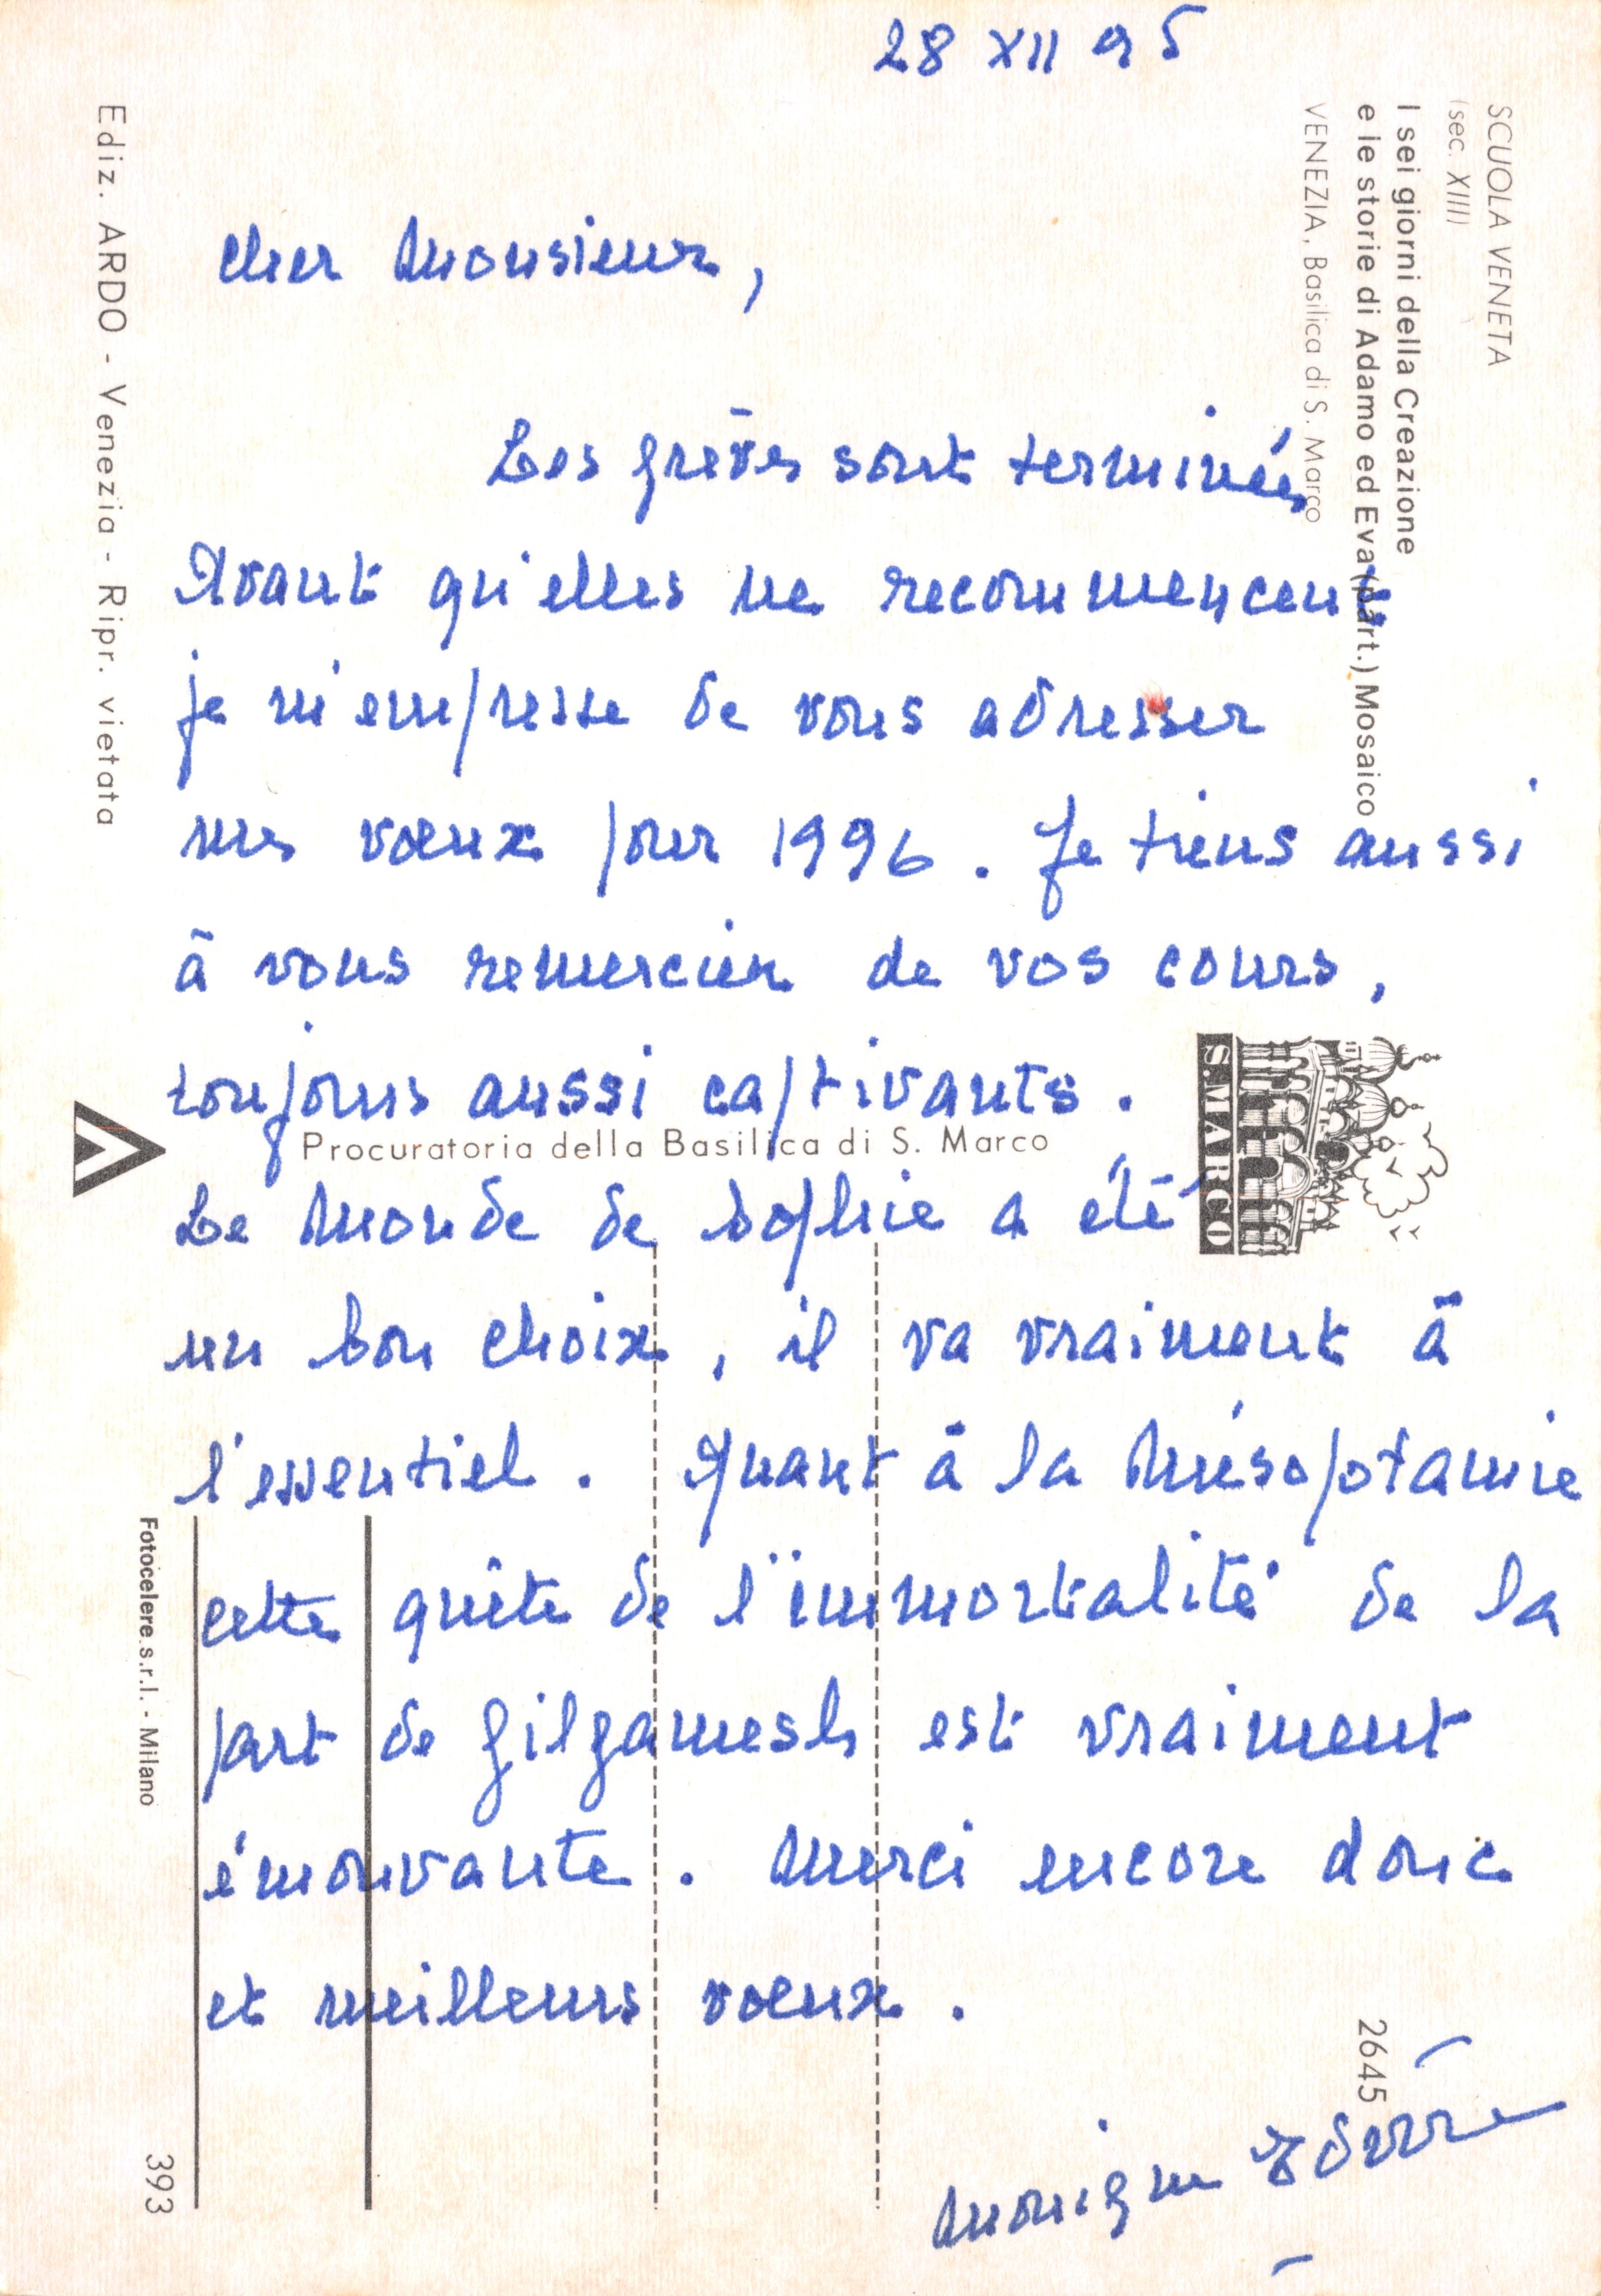 28 XII 95
Cher Monsieur,
Les grèves sont terminées
Avant qu'elles ne recommencent
je m'empresse de vous adresser
mes vœux pour 1996. Je tiens aussi
à vous remercier de vos cours,
toujours aussi captivants.
Le Monde de Sophie a été
un bon choix, il va vraiment à
l'essentiel. Quant à la Mésopotamie
cette quête de l'immortalité de la
part de Gilgamesh est vraiment
émouvante. Merci encore donc
et meilleurs vœux.
Monique
SCUOLA VENETA
(sec. XIII)
I sei giorni della Creazione
e le storie di Adamo ed Eva (part.) Mosaico
VENEZIA, Basilica di S. Marco
S. MARCO
Procuratoria della Basilica di S. Marco
Ediz. ARDO - Venezia - Ripr. vietata
Fotocelere s.r.l. - Milano
393
2645